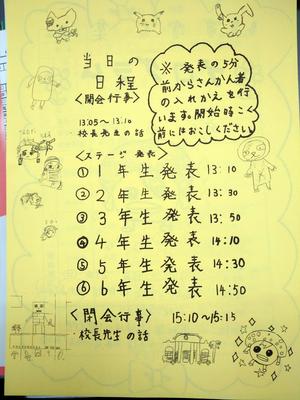 当日の
日程
〈開会行事〉
13:05〜13:10
校長先生の話
※発表の5分
前からさんかん者
の入れかえを行
います。開始時こく
前にはおこしください
〈ステージ発表〉
① 1年生発表 13:10
② 2年生発表 13:30
③ 3年生発表 13:50
④ 4年生発表 14:10
⑤ 5年生発表 14:30
⑥ 6年生発表 14:50
〈閉会行事〉 15:10〜15:15
・校長先生の話